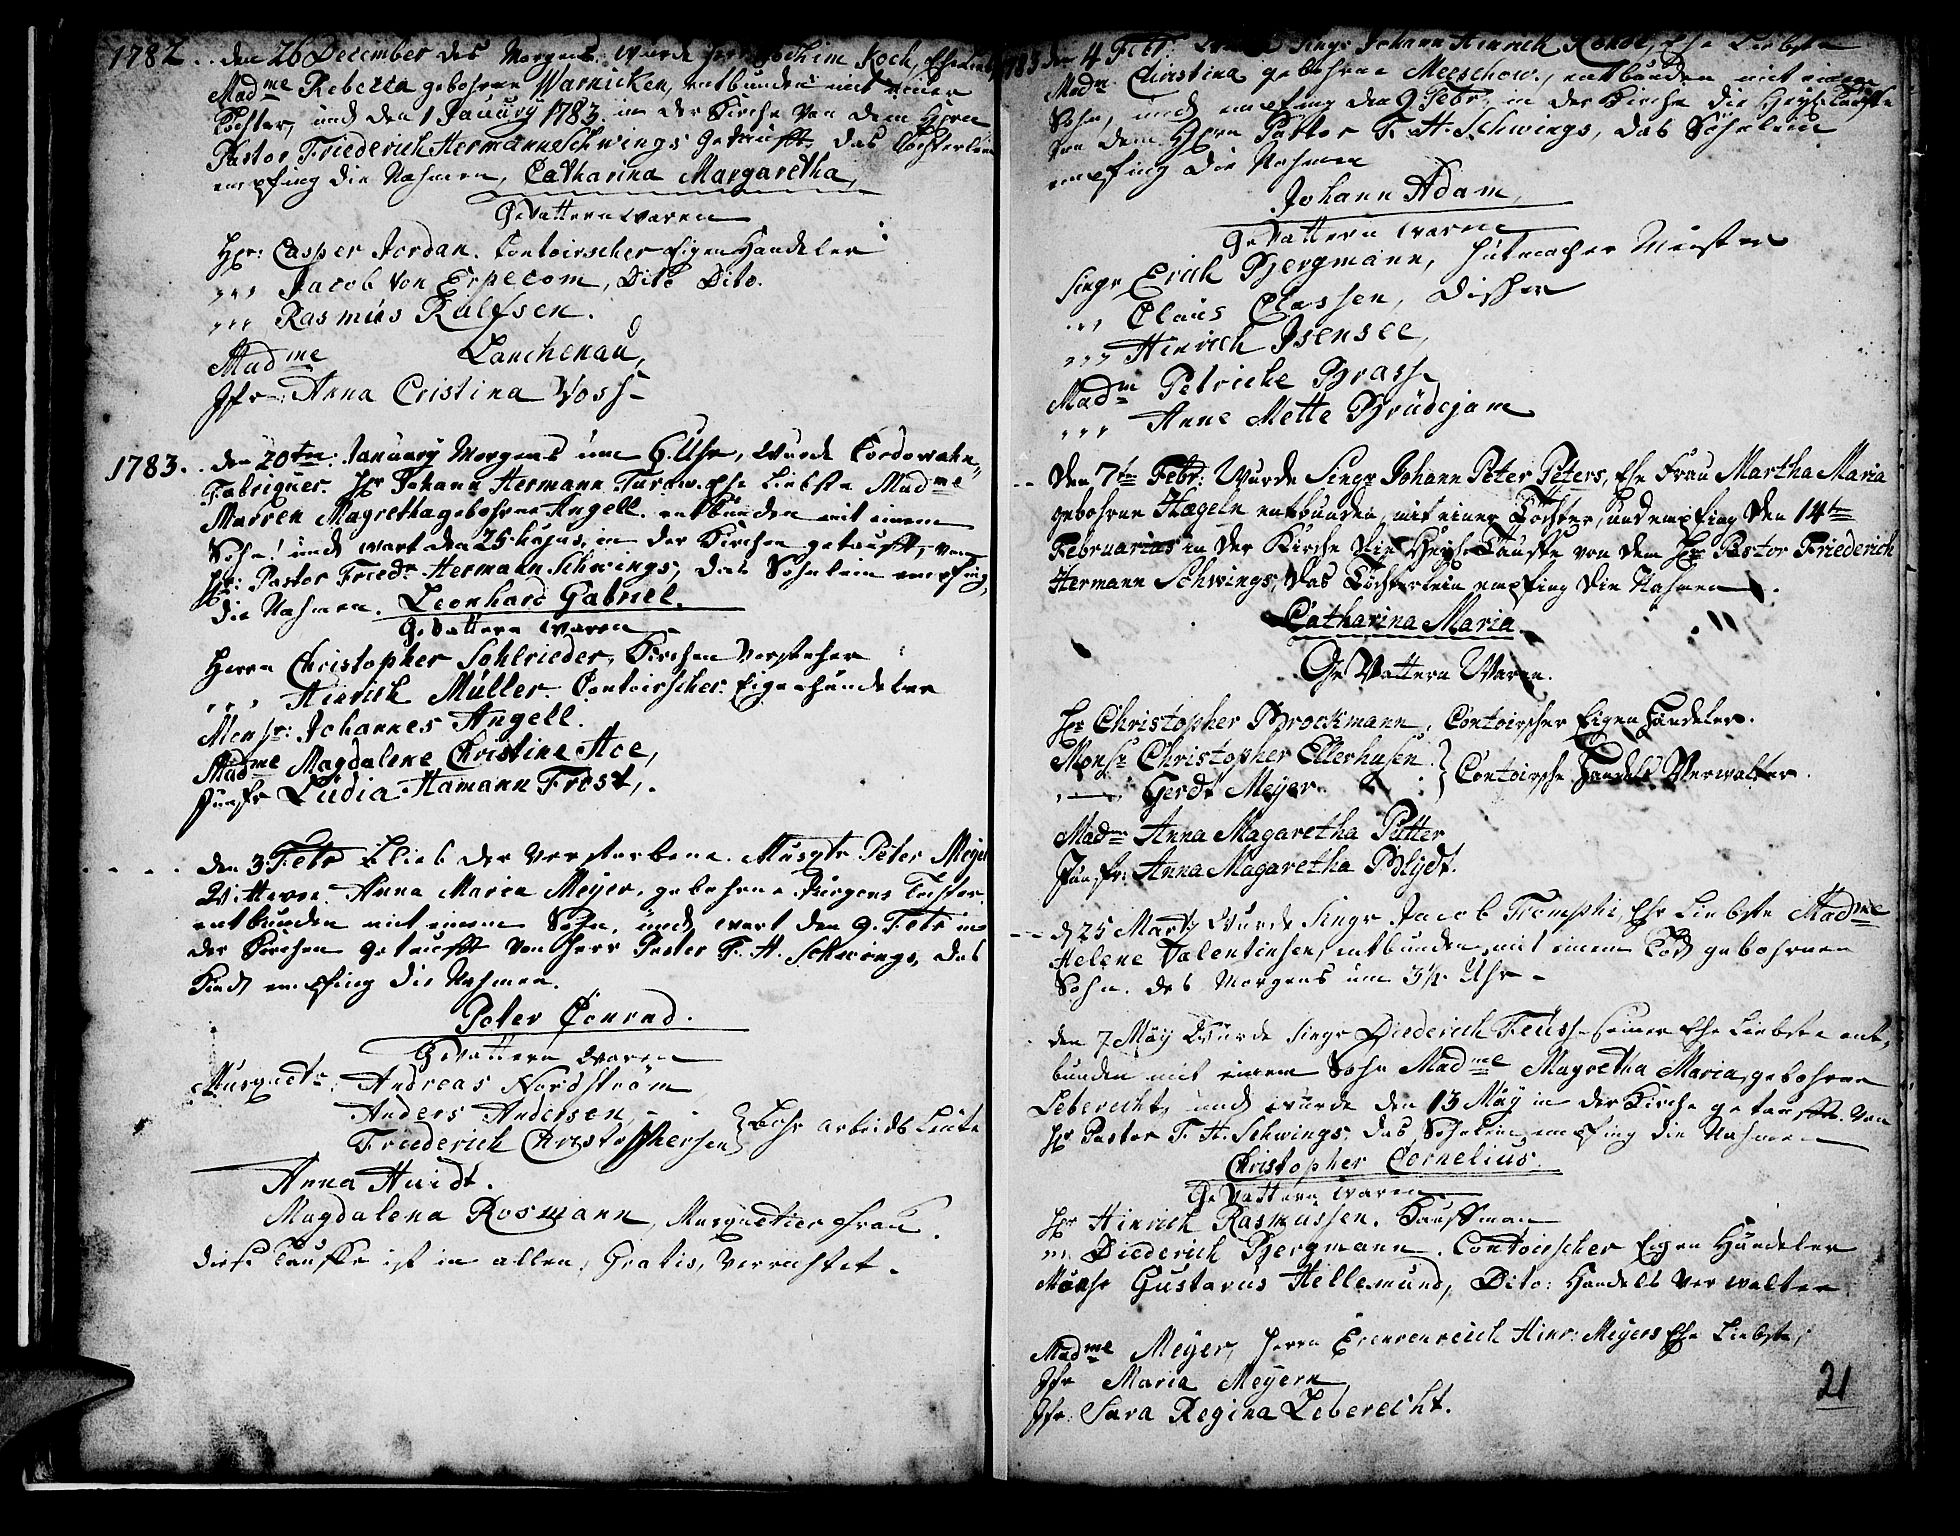 1782. den 26 December des Morgens wurde Herr Jochim Koch, Ehe Liebste
Madme Rebecca gebohrne Warnicken, entbunden mit einer
Tochter, und den 1 Januüry 1783. in der Kirche von dem Herrn
Pastor Friederich Hermann Schwings getaufft, das Töchterlein
empfing die Nahmen, Catharina Margaretha,
Gevattern waren
Hr: Casper Jordan. Contoirscher Eigen Handeler
,,, Jacob Von Erpecom, Dito Dito.
,,, Rasmus Rulfsen.
Madme Lanchenau,
Jfr Anna Cristina Voss
1783. den 20ten January Morgens um 6. Uhr, wurde Cordowahn
Fabriquer. Hr Johann Hermann Turow. Ehe Liebste Madme
Marren Magretha gebohrne Angell. entbunden mit einem
Sohn, und wart den 25 hujus, in der Kirchen getaufft, von
Hr: Pastor Friedr Hermann Schwings, das Sohnlein empfing
die Nahmen. Leonhard Gabriel.
Gevattern waren
Herrn Christopher Sohlrieder, Kirchen Vorsteher
,,, Hinrich Müller Contoirscher Eigenhandeler
Monsr: Johannes Angell.
Madme Magdalene Christine Ace,
Junfr Lüdia Hamann Frost,.
den 3 Febr blieb der Verstorbene. Musqtr Peter Meyer
Wittwee. Anna Maria Meyer, gebohrne Jürgens Tochter.
entbunden mit einem Sohn, und wart den 9. Febr in
der Kirchen getaufft von Herr Pastor F. H. Schwings, das
Kind empfing die Nahmen.
Peter Conrad.
Gevattern waren
Musquetr. Andreas Nordström
Anders Andersen,
Friederich Christophersen } Lohr arbeids Leute
Anna Huidt.
Magdalena Rosmann, Musquetier Frau.
diese Tauffe ist in allen, Gratis, verrichtet.
1783 den 4 Febr: Wurde Singr Johann Hinrich Ehe Liebste
Madm Christina gebohrne Meeschow, entbunden mit einem
Sohn, und empfing den 9 Febr, in der Kirche die Heyl: Tauffe
von dem Herrn Pastor F. H. Schwings, das Söhnlein
empfing die Nahmen
Johann Adam,
Gevattern waren
Singr Erich Bergmann, Hutmacher Meister
,,, Claus Classen, Discher
,,, Hinrich Isensee,
Madm Petricke Brasse
,,, Anne Mette Brüdejam
Den 7ten Febr: Wurde Singr Johann Peter Peters, Ehe Frau Martha Maria
gebohrne Hageln entbunden, mit einer Tochter, und empfing den 14ten
Februarias in der Kirche die Heyl: Tauffe von dem Hr Pastor Friederich
Hermann Schwings, das Töchterlein empfing die Nahmen.
Catharina Maria
Gevattern Waren.
Hr Christopher Brockmann, Contoirscher Eigen Handeler.
Monsr Christopher Ellerhusen
Gerdt Meyer } Contoirsche Handels Verwalter.
Madme Anna Magaretha Putter
Junfr: Anna Magaretha Blydt.
d 25 Marty Wurde Singr Jacob Trompki, Ehe Liebste Madme
Helene Valentinsen, entbunden mit einem Tod gebohrnen
Sohn. des Morgens um 3½ Uhr
den 7 Mäy Würde Singr Diederich Feüss seiner Ehe Liebste ent,
bunden mit einem Sohn Madme Magretha Maria, gebohrne
Leberecht, und wurde den 13 Mäy in der Kirche getaufft. von
Hr Pastor F. H. Schwings, das Sohnlein empfing die Nahmen
Christopher Cornelius.
Gevattern waren
Hr Hinrich Rasmussen. Kauffman
,,, Diederich Bergmann. Contoirscher Eigen Handeler
Monsr Gustavus Hellemund, Dito: Handels Verwalter
Madme Meyer, Herrn Erenreich Hinr: Meyers Ehe Liebste,
Jfr Maria Meyern
Jfr: Sara Regina Leberecht.
21